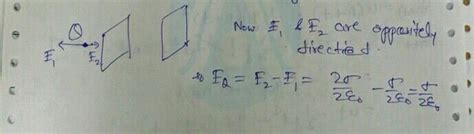 Q
E₁ E₂
Now E₁ & E₂ are oppositely
directed.
so E_Q = E₂ - E₁ = 2σ/2ε₀ - σ/2ε₀ = σ/2ε₀